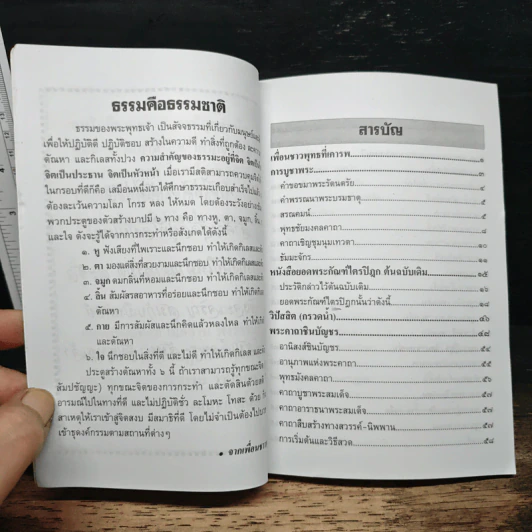 ธรรมคือธรรมชาติ
ธรรมของพระพุทธเจ้า เป็นสัจธรรมที่เกี่ยวกับมนุษย์
เพื่อให้ปฏิบัติดี ปฏิบัติชอบ สร้างในความดี ทำสิ่งที่ถูกต้อง
ตัณหา และกิเลสทั้งปวง ความสำคัญของธรรมะอยู่ที่จิต
จิตเป็นประธาน จิตเป็นหัวหน้า เมื่อเรามีสติสามารถควบคุม
ในกรอบที่ดีก็คือ เสมือนหนึ่งเราได้ศึกษาธรรมะเกือบสำเร็จ
ต้องละเว้นความโลภ โกรธ หลง ให้หมด โดยต้องระวังอย่า
พวกประตูของตัวสร้างบาปมี ๖ ทาง คือ ทางหู, ตา, จมูก, ลิ้น,
และใจ ดังจะรู้ได้จากการกระทำหรือสังเกตได้ดังนี้
๑. หู ฟังเสียงที่ไพเราะและนึกชอบ ทำให้เกิดกิเลสและ
๒. ตา มองแต่สิ่งที่สวยงามและนึกชอบ ทำให้เกิดกิเลสและ
๓. จมูก ดมกลิ่นที่หอมและนึกชอบ ทำให้เกิดกิเลสและ
๔. ลิ้น สัมผัสรสอาหารที่อร่อยและนึกชอบ ทำให้เกิด
ตัณหา
๕. กาย มีการสัมผัสและนึกคิดแล้วหลงใหล ทำให้
และตัณหา
๖. ใจ นึกชอบในสิ่งที่ดี และไม่ดี ทำให้เกิดกิเลส
ประตูสร้างตัณหาทั้ง ๖ นี้ ถ้าเราสามารถรู้ทุกขณะจิต
สัมปชัญญะ) ทุกขณะจิตของการกระทำ และตัดสินด้วย
อารมณ์ไปในทางที่ดี และไม่ปฏิบัติชั่ว ละโมหะ โทสะ ด้วย
สาเหตุให้เราเข้าสู่จิตสงบ มีสมาธิที่ดี โดยไม่จำเป็นต้องไป
เข้าธุดงค์กรรมตามสถานที่ต่างๆ
• จากเพื่อน
สารบัญ
เพื่อนชาวพุทธที่เคารพ ๑
การบูชาพระ ๓
คำขอขมาพระรัตนตรัย ๔
คำพรรณนาพระบรมธาตุ ๕
สรณคมน์ ๕
พุทธชัยมงคลคาถา ๘
คาถาเชิญชุมนุมเทวดา ๑๐
ชัมะจักกร ๑๑
หนังสือยอดพระกัณฑ์ไตรปิฎก ต้นฉบับเดิม ๑๕
ประวัติกล่าวไว้ต้นฉบับเดิม ๑๖
ยอดพระกัณฑ์ไตรปิฎกนั้นว่าดังนี้ ๑๘
วิปัสสิต (กรวดน้ำ) ๔๖
พระคาถาชินบัญชร ๔๘
อานิสงส์ชินบัญชร ๕๔
อานุภาพแห่งพระคาถา ๕๕
พุทธมังคลคาถา ๕๖
คาถาบูชาพระสมเด็จ ๕๗
คาถาอาราธนาพระสมเด็จ ๕๗
คาถาสืบสร้างทางสวรรค์-นิพพาน ๕๗
การเริ่มต้นและวิธีสวด ๕๘